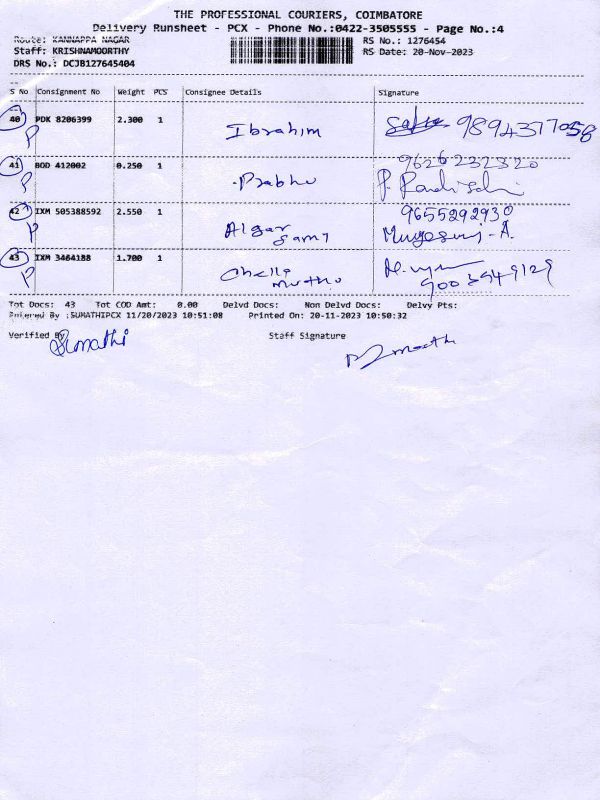 THE PROFESSIONAL COURIERS, COIMBATORE
Delivery Runsheet - PCX - Phone No.:0422-3505555 - Page No.:4
Route: KANNAPPA NAGAR RS No.: 1276454
Staff: KRISHNAMOORTHY RS Date: 20-Nov-2023
DRS No.: DCJB127645404
S No Consignment No Weight PCS Consignee Details Signature
40 PDK 8206399 2.300 1 Ibrahim 9894377058
P
41 BOD 412002 0.250 1 Prabhu 9626232320
P
42 IXM 505388592 2.550 1 Algar Samy 9655292930
P Murugesan-A.
43 IXM 3464188 1.700 1 Chella Muthu
P 9003949129
Tot Docs: 43 Tot COD Amt: 0.00 Delvd Docs: Non Delvd Docs: Delvy Pts:
Entered By :SUMATHIPCX 11/20/2023 10:51:08 Printed On: 20-11-2023 10:50:32
Verified By Sumathi Staff Signature